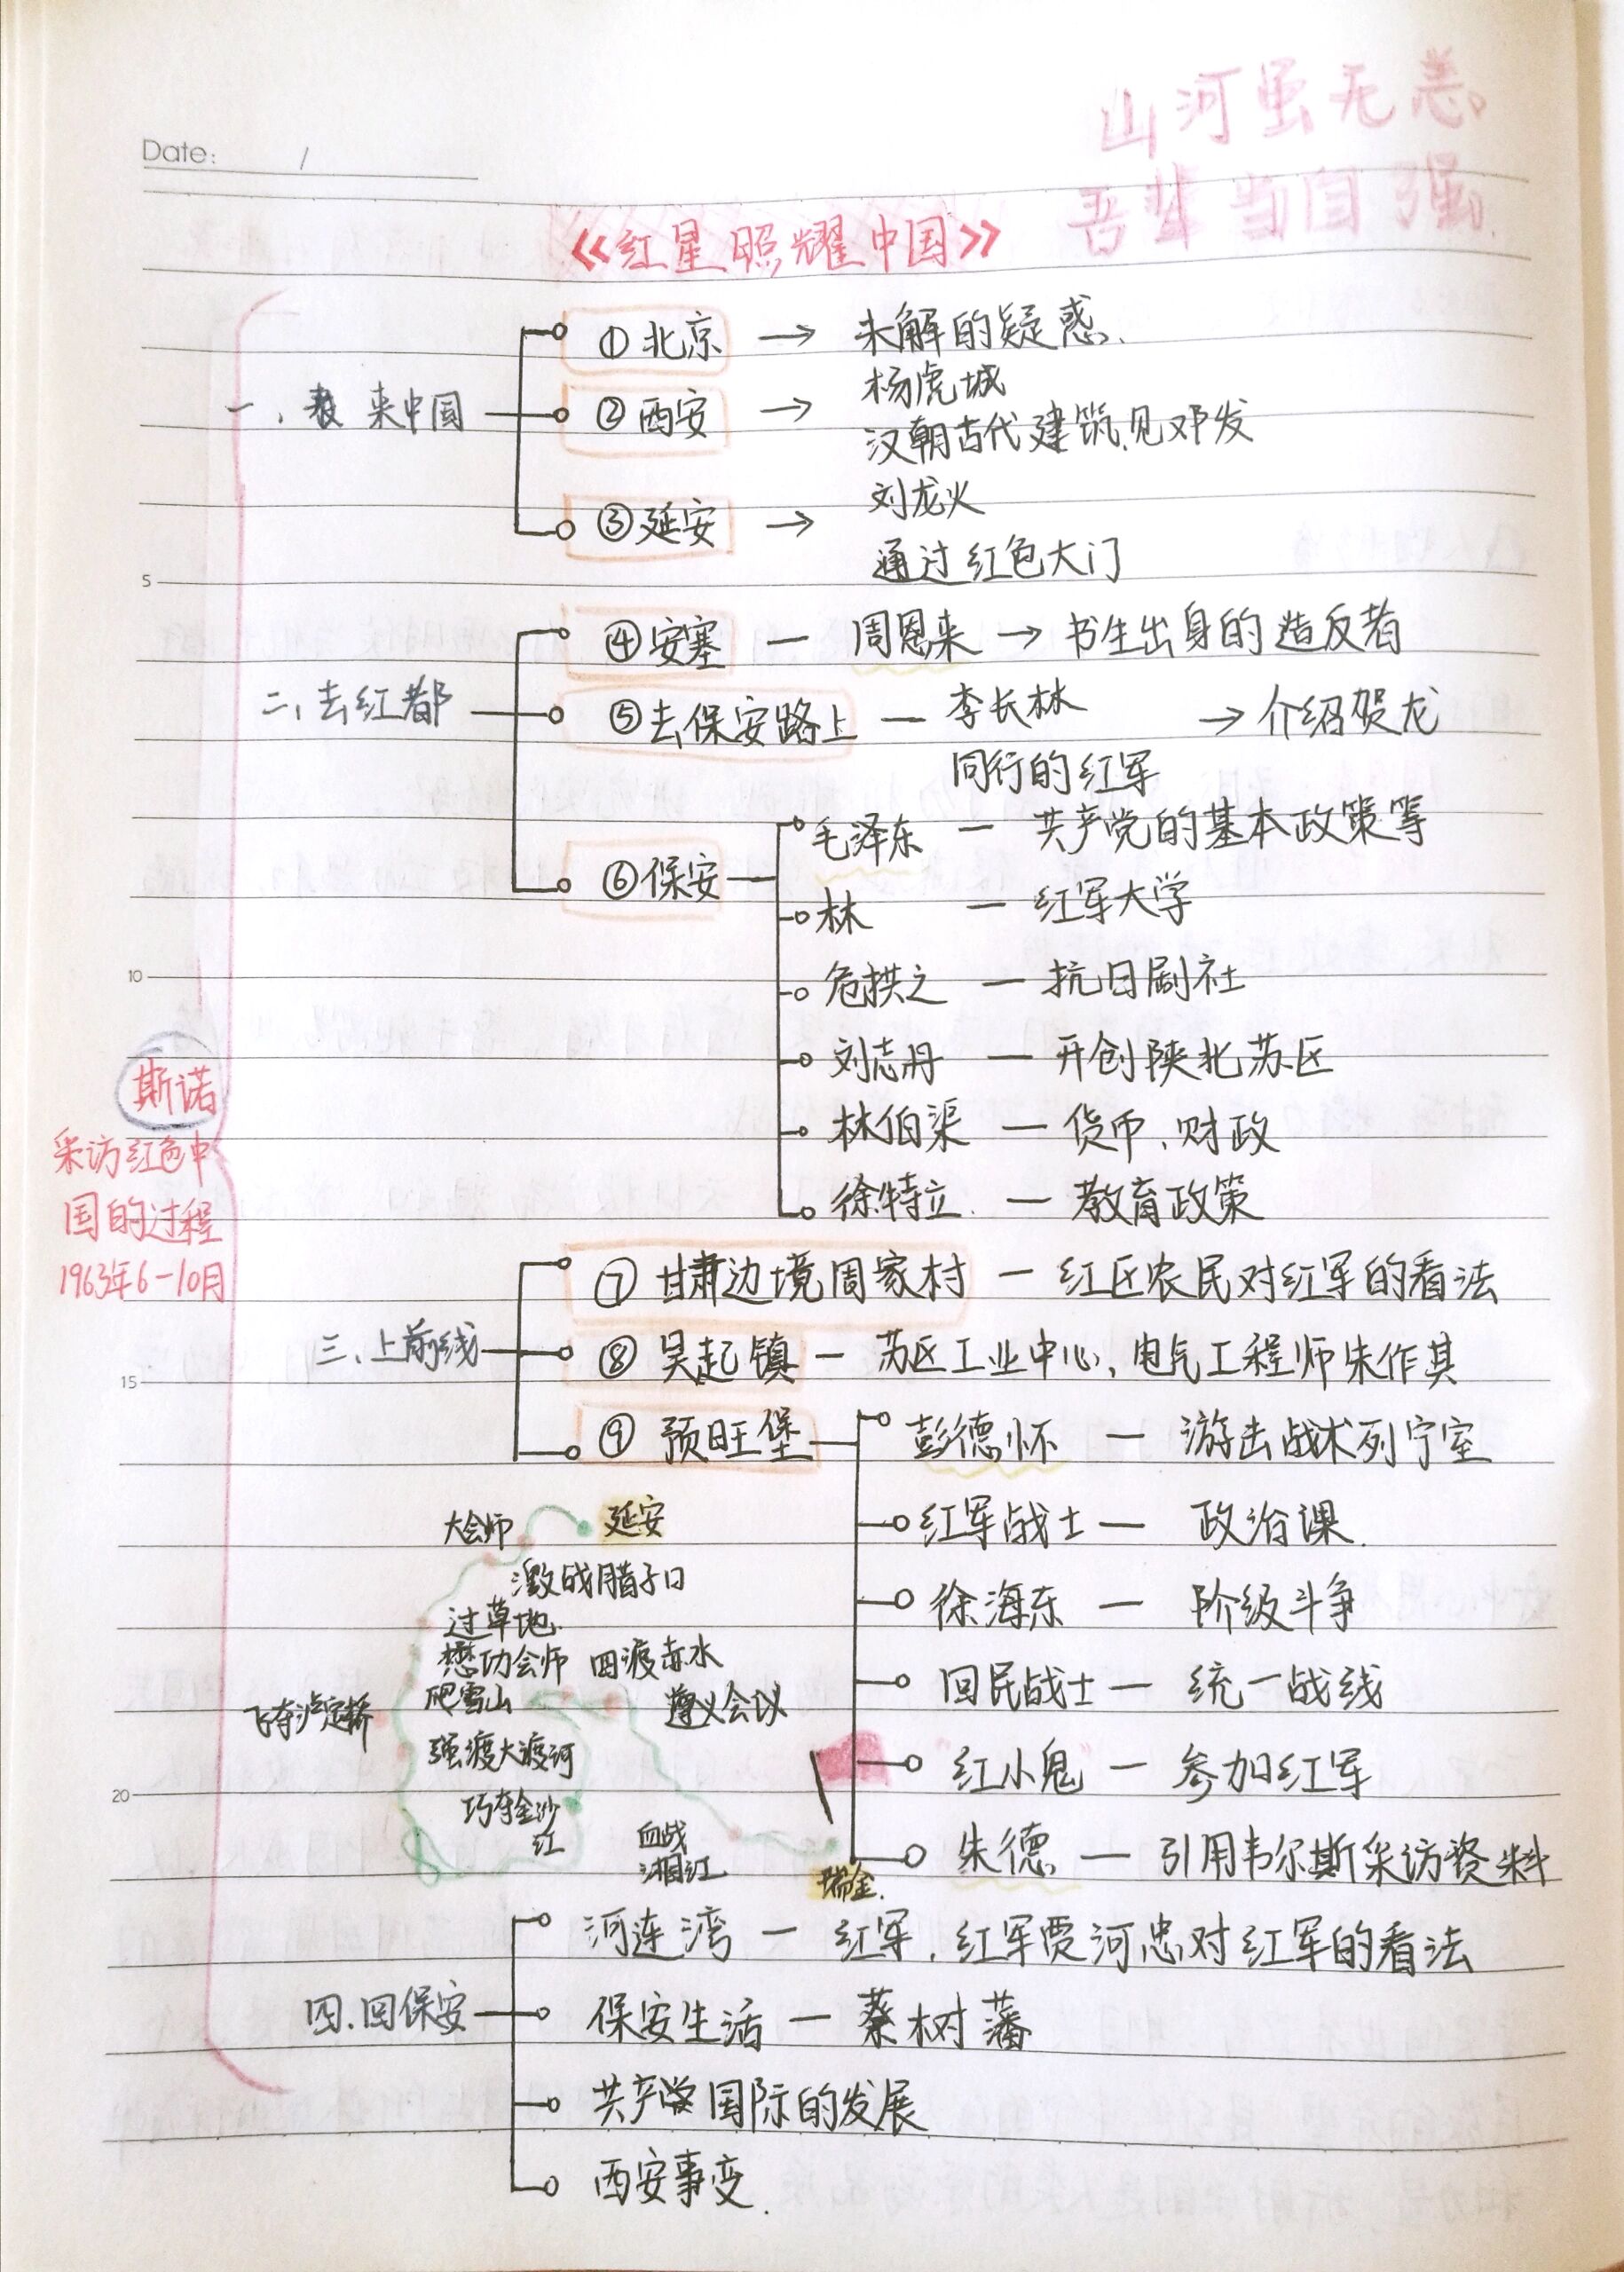 山河虽无恙
吾辈当自强
Date: /
《红星照耀中国》
一、来中国
①北京 → 未解的疑惑
②西安 → 杨虎城
汉朝古代建筑、见邓发
③延安 → 刘龙火
通过红色大门
二、去红都
④安塞 — 周恩来 → 书生出身的造反者
⑤去保安路上 — 李长林 → 介绍贺龙
同行的红军
⑥保安
毛泽东 — 共产党的基本政策等
林 — 红军大学
危拱之 — 抗日剧社
刘志丹 — 开创陕北苏区
林伯渠 — 货币、财政
徐特立 — 教育政策
斯诺
采访红色中
国的过程
1963年6-10月
三、上前线
⑦甘肃边境周家村 — 红区农民对红军的看法
⑧吴起镇 — 苏区工业中心,电气工程师朱作其
⑨预旺堡
彭德怀 — 游击战术列宁室
红军战士 — 政治课
徐海东 — 阶级斗争
回民战士 — 统一战线
"红小鬼" — 参加红军
朱德 — 引用韦尔斯采访资料
大会师 延安
激战腊子口
过草地
懋功会师 四渡赤水
爬雪山 遵义会议
飞夺泸定桥
强渡大渡河
巧夺金沙
红
血战
湘江
瑞金
四、回保安
河连湾 — 红军,红军贾河忠对红军的看法
保安生活 — 蔡树藩
共产党国际的发展
西安事变
5
10
15
20